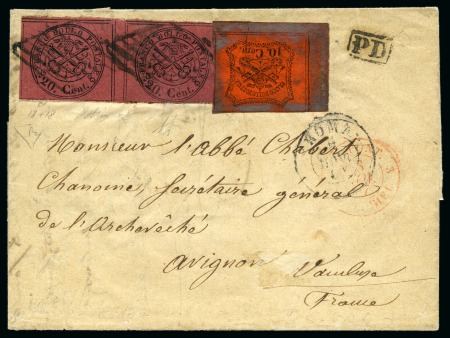 20 Cent.
20 Cent.
10 Cent.
PD
ROMA
Monsieur l'abbé Chabert
Chanoine, Secrétaire général
de l'Archevêché
Avignon
Vaucluse
France